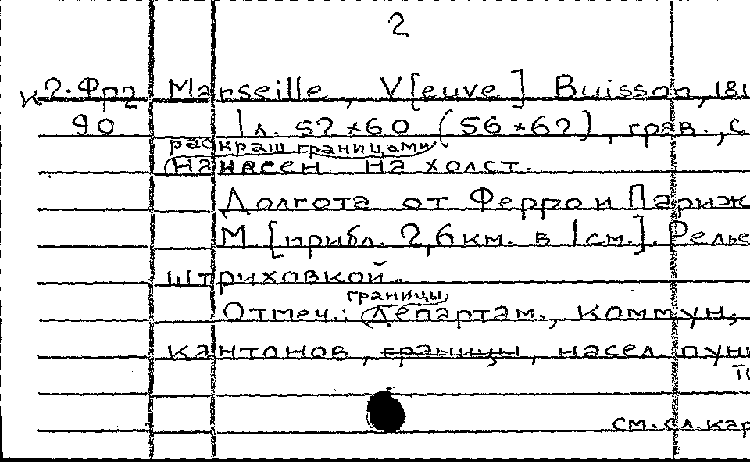 2
К 2-Фр2 Marseille, V[euve] Buisson, 181
90 1 л. 52*60 (56*62), грав., с
раскраш границами
нанесен на холст.
Долгота от Ферро и Париж
М [прибл. 2,6 км. в 1 см.]. Релье
штриховкой.
границы
Отмеч.: департам., коммун,
кантонов, границы, насел. пун
см. сл. кар